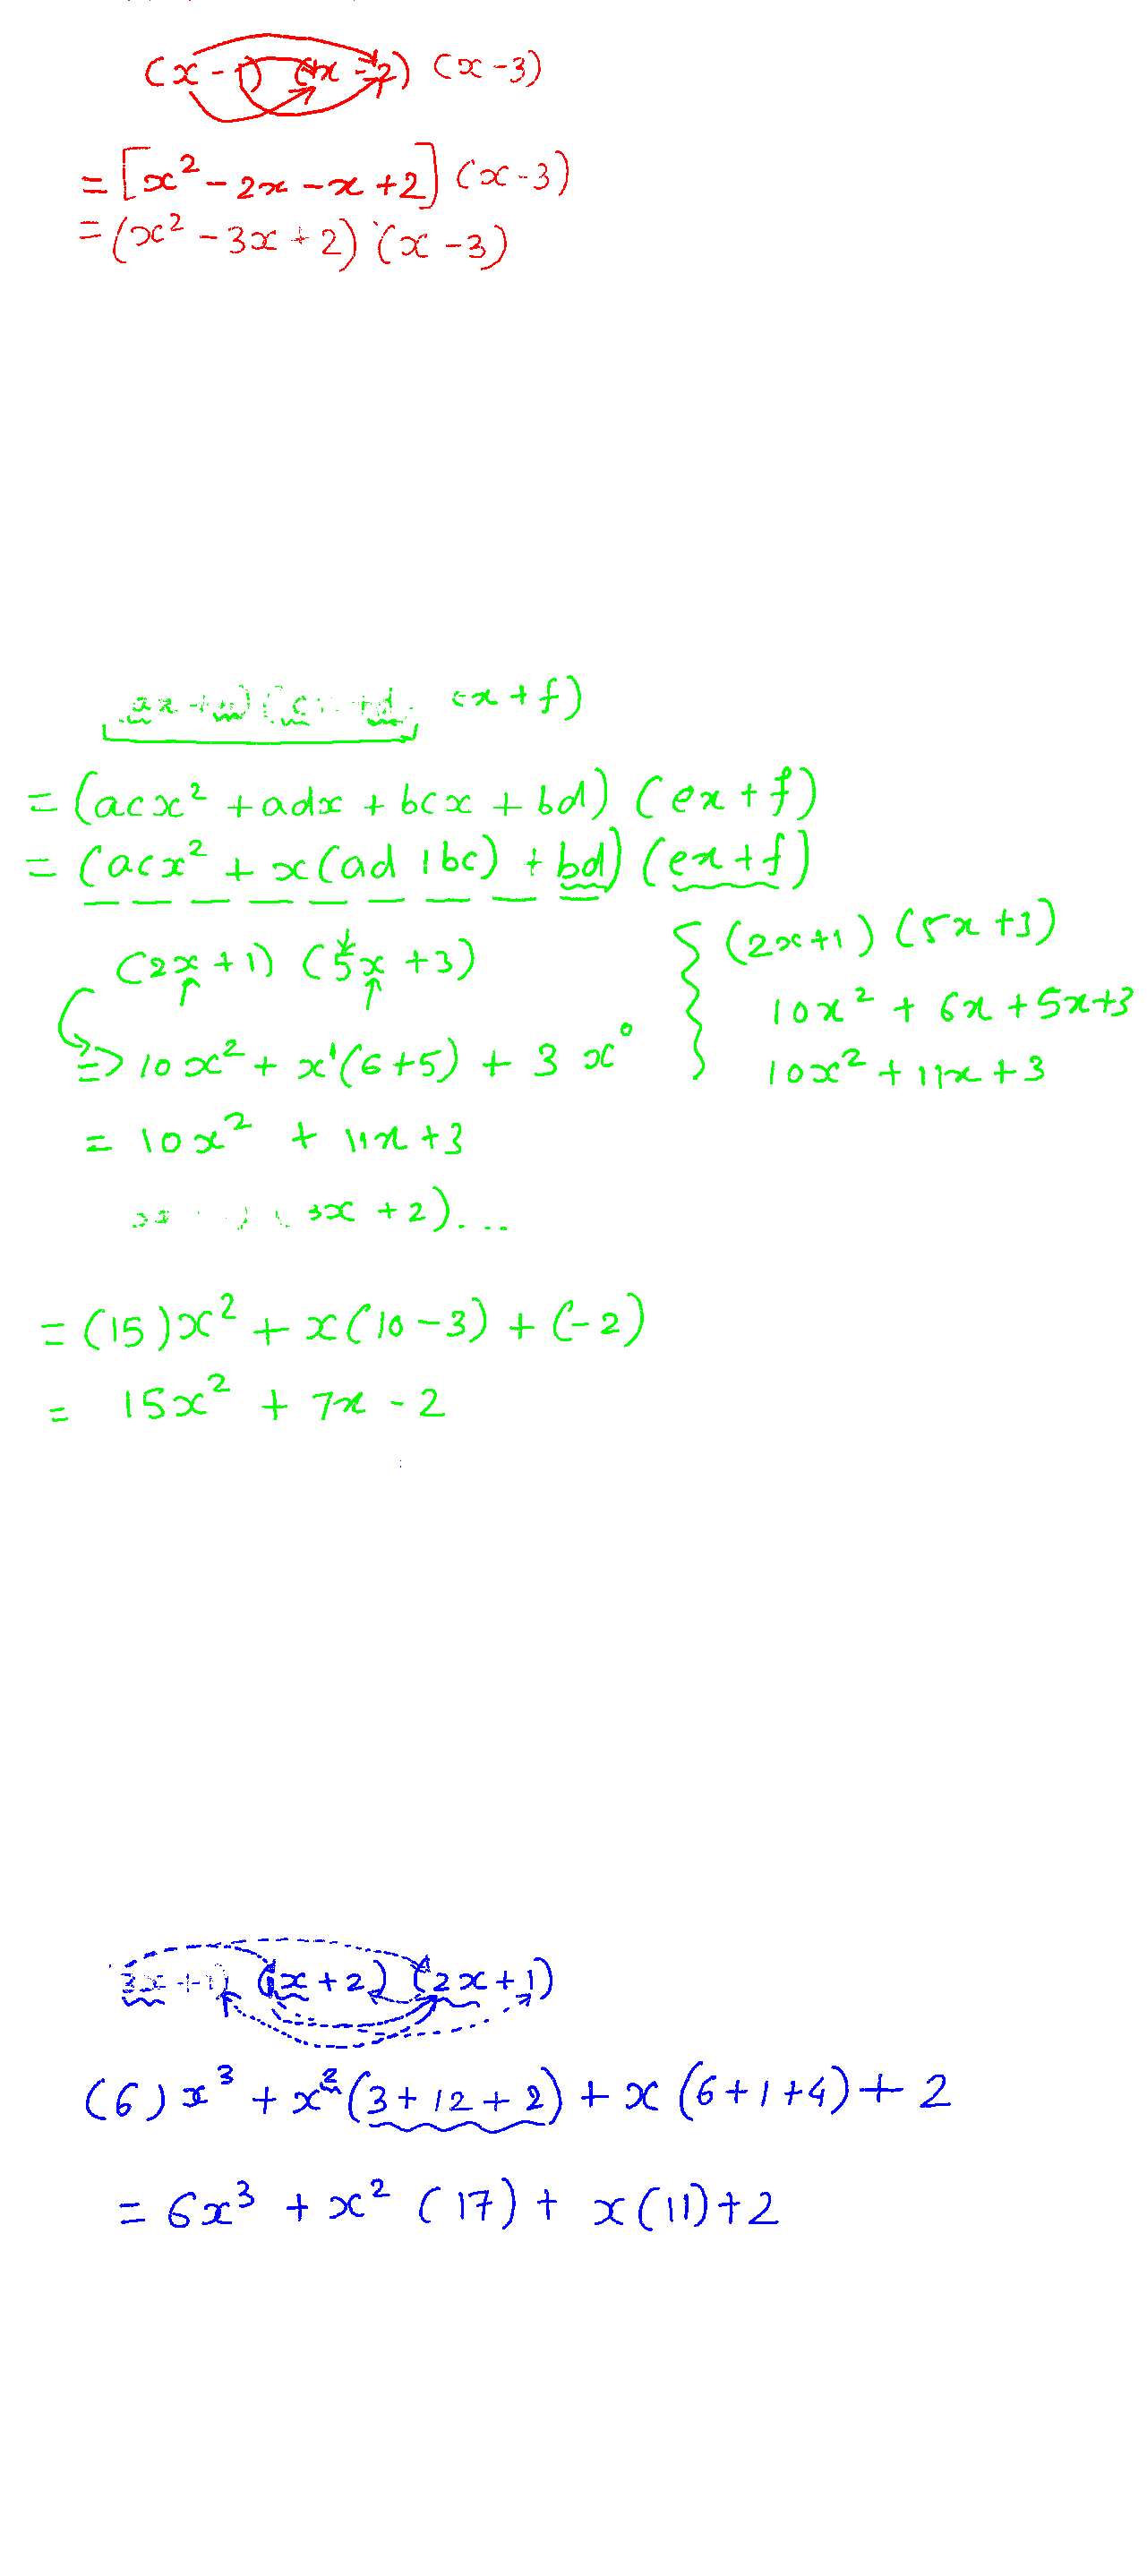 (x - 1) (x - 2) (x - 3)
= [x² - 2x - x + 2] (x - 3)
= (x² - 3x + 2) (x - 3)
ax + b) (c + d x + f)
= (acx² + adx + bcx + bd) (ex + f)
= (acx² + x(ad + bc) + bd) (ex + f)
(2x + 1) (5x + 3)
=> 10x² + x¹(6 + 5) + 3 x⁰
= 10x² + 11x + 3
(2x + 1) (5x + 3)
10x² + 6x + 5x + 3
10x² + 11x + 3
3x + 2) ...
= (15)x² + x(10 - 3) + (-2)
= 15x² + 7x - 2
3x + 1) (1x + 2) (2x + 1)
(6) x³ + x²(3 + 12 + 2) + x (6 + 1 + 4) + 2
= 6x³ + x² (17) + x(11) + 2